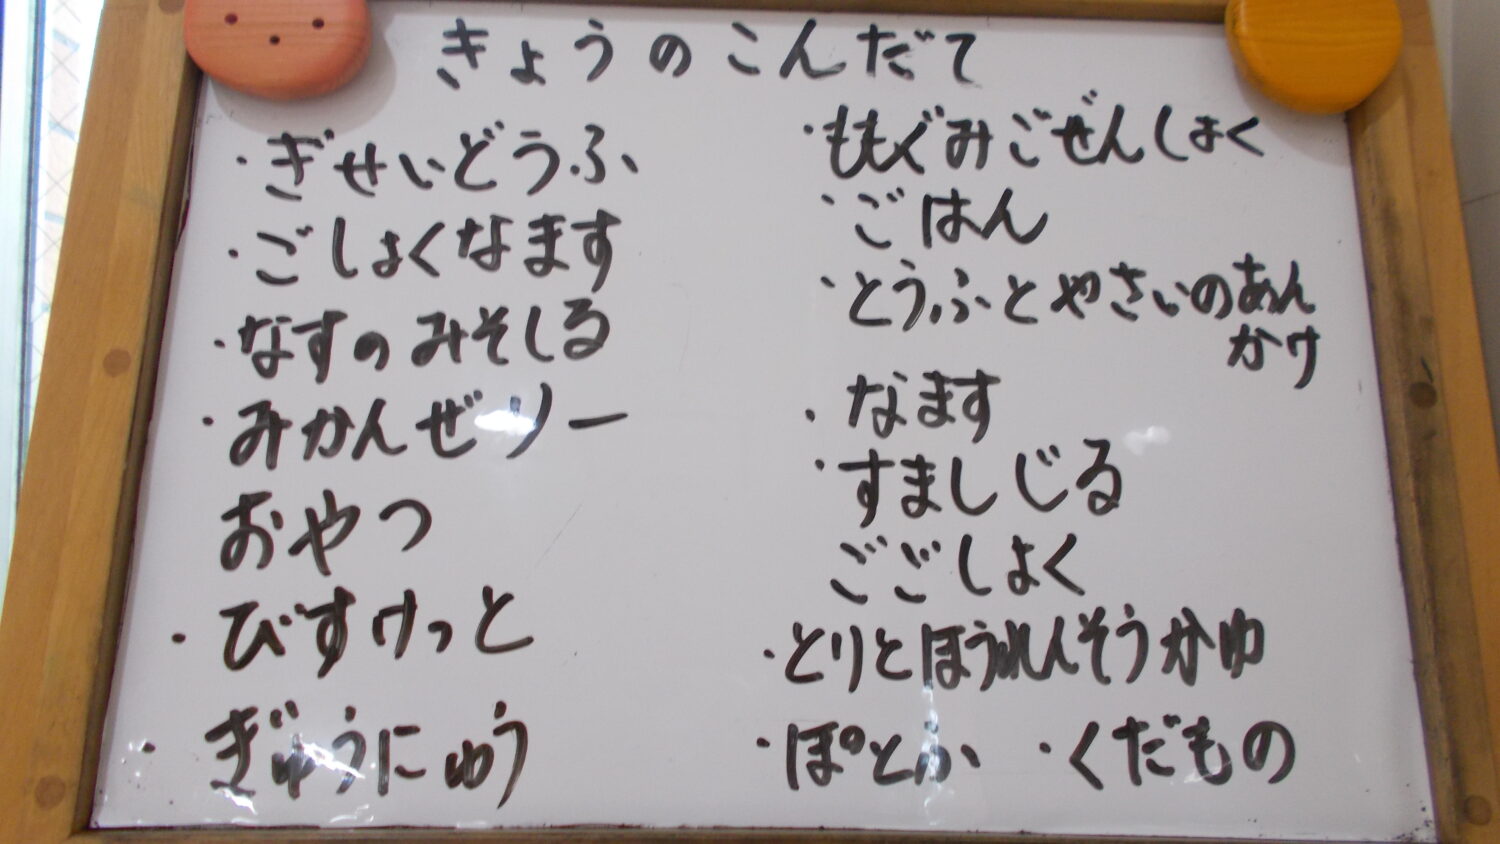 きょうのこんだて
・ぎせいどうふ
・ごしょくなます
・なすのみそしる
・みかんぜりー
おやつ
・びすけっと
・ぎゅうにゅう
・ももぐみごぜんしょく
・ごはん
・とうふとやさいのあん
かけ
・なます
・すましじる
ごごしょく
・とりとほうれんそうかゆ
・ぽとふ ・くだもの